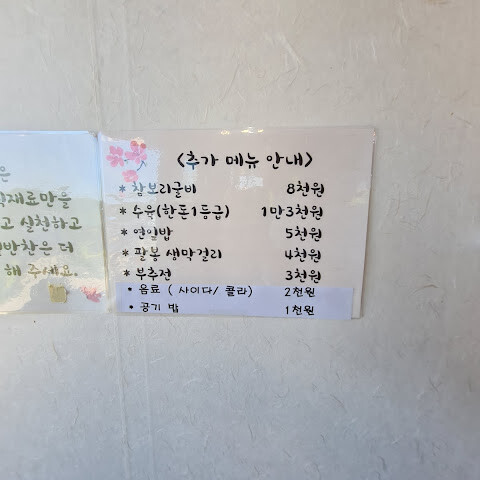 <추가 메뉴 안내>
* 참보리굴비 8천원
* 수육(한돈1등급) 1만3천원
* 연잎밥 5천원
* 팔봉 생막걸리 4천원
* 부추전 3천원
• 음료 ( 사이다/ 콜라) 2천원
• 공기 밥 1천원
은
식재료만을
고 실천하고
반찬은 더
해 주세요.